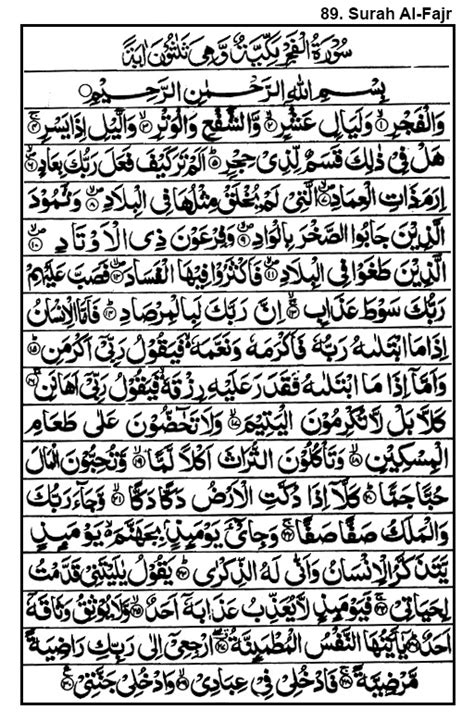 89. Surah Al-Fajr
سُوْرَةُ الْفَجْرِ مَكِّيَّةٌ وَّهِیَ ثَلٰثُوْنَ اٰیَةً
بِسْمِ اللهِ الرَّحْمٰنِ الرَّحِیْمِ
وَالْفَجْرِ ۙ۱ وَلَیَالٍ عَشْرٍ ۙ۲ وَّالشَّفْعِ وَالْوَتْرِ ۙ۳ وَالَّیْلِ اِذَا یَسْرِ ۚ۴
هَلْ فِیْ ذٰلِكَ قَسَمٌ لِّذِیْ حِجْرٍ ؕ۵ اَلَمْ تَرَ كَیْفَ فَعَلَ رَبُّكَ بِعَادٍ ۙ۶
اِرَمَ ذَاتِ الْعِمَادِ ۙ۷ الَّتِیْ لَمْ یُخْلَقْ مِثْلُهَا فِی الْبِلَادِ ۙ۸ وَثَمُوْدَ
الَّذِیْنَ جَابُوا الصَّخْرَ بِالْوَادِ ۙ۹ وَفِرْعَوْنَ ذِی الْاَوْتَادِ ۙ۱۰
الَّذِیْنَ طَغَوْا فِی الْبِلَادِ ۙ۱۱ فَاَكْثَرُوْا فِیْهَا الْفَسَادَ ۙ۱۲ فَصَبَّ عَلَیْهِمْ
رَبُّكَ سَوْطَ عَذَابٍ ۚ۱۳ اِنَّ رَبَّكَ لَبِالْمِرْصَادِ ؕ۱۴ فَاَمَّا الْاِنْسَانُ
اِذَا مَا ابْتَلٰىهُ رَبُّهٗ فَاَكْرَمَهٗ وَنَعَّمَهٗ فَیَقُوْلُ رَبِّیْۤ اَكْرَمَنِ ؕ۱۵
وَاَمَّاۤ اِذَا مَا ابْتَلٰىهُ فَقَدَرَ عَلَیْهِ رِزْقَهٗ فَیَقُوْلُ رَبِّیْۤ اَهَانَنِ ۚ۱۶
كَلَّا بَلْ لَّا تُكْرِمُوْنَ الْیَتِیْمَ ۙ۱۷ وَلَا تَحٰٓضُّوْنَ عَلٰی طَعَامِ
الْمِسْكِیْنِ ۙ۱۸ وَتَاْكُلُوْنَ التُّرَاثَ اَكْلًا لَّمًّا ۙ۱۹ وَّتُحِبُّوْنَ الْمَالَ
حُبًّا جَمًّا ؕ۲۰ كَلَّاۤ اِذَا دُكَّتِ الْاَرْضُ دَكًّا دَكًّا ۙ۲۱ وَّجَآءَ رَبُّكَ
وَالْمَلَكُ صَفًّا صَفًّا ۚ۲۲ وَجِایْٓءَ یَوْمَئِذٍۭ بِجَهَنَّمَ یَوْمَئِذٍ
یَّتَذَكَّرُ الْاِنْسَانُ وَاَنّٰی لَهُ الذِّكْرٰی ؕ۲۳ یَقُوْلُ یٰلَیْتَنِیْ قَدَّمْتُ
لِحَیَاتِیْ ۚ۲۴ فَیَوْمَئِذٍ لَّا یُعَذِّبُ عَذَابَهٗۤ اَحَدٌ ۙ۲۵ وَّلَا یُوْثِقُ وَثَاقَهٗۤ
اَحَدٌ ؕ۲۶ یٰۤاَیَّتُهَا النَّفْسُ الْمُطْمَئِنَّةُ ۖ۲۷ ارْجِعِیْۤ اِلٰی رَبِّكِ رَاضِیَةً
مَّرْضِیَّةً ۚ۲۸ فَادْخُلِیْ فِیْ عِبَادِیْ ۙ۲۹ وَادْخُلِیْ جَنَّتِیْ ۠۳۰